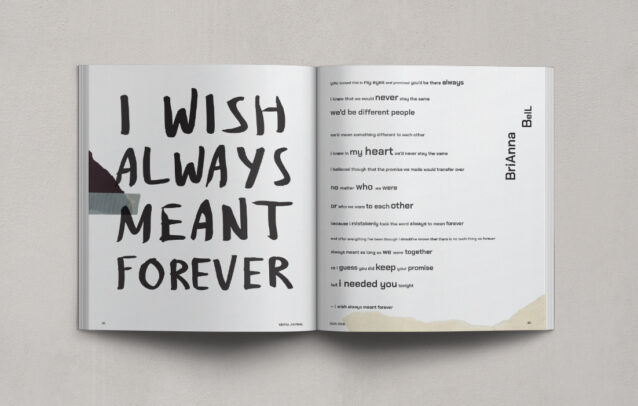 I WISH
ALWAYS
MEANT
FOREVER
you looked me in my eyes and promised you'd be there always
i knew that we would never stay the same
we'd be different people
we'd mean something different to each other
i knew in my heart we'd never stay the same
i believed though that the promise we made would transfer over
no matter who we were
or who we were to each other
because i mistakenly took the word always to mean forever
and after everything i've been through i should've known that there is no such thing as forever
always meant as long as we were together
so i guess you did keep your promise
but i needed you tonight
— i wish always meant forever
BriAnna
BelL